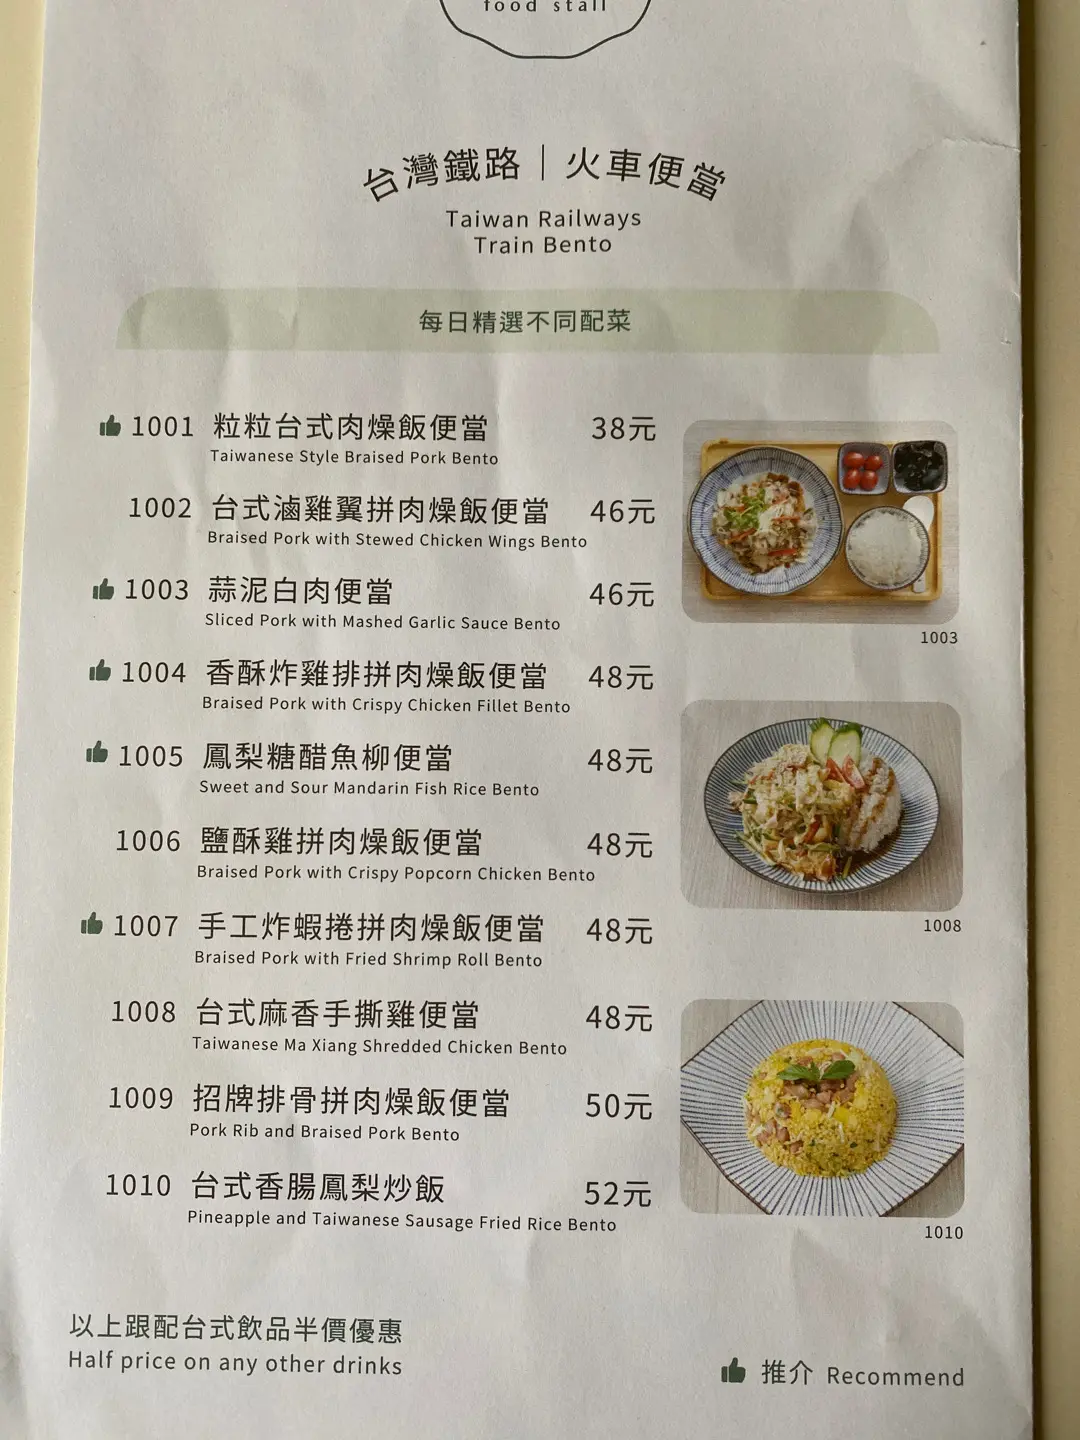 food stall
台灣鐵路｜火車便當
Taiwan Railways
Train Bento
每日精選不同配菜
1001 粒粒台式肉燥飯便當 38元
Taiwanese Style Braised Pork Bento
1002 台式滷雞翼拼肉燥飯便當 46元
Braised Pork with Stewed Chicken Wings Bento
1003 蒜泥白肉便當 46元
Sliced Pork with Mashed Garlic Sauce Bento
1003
1004 香酥炸雞排拼肉燥飯便當 48元
Braised Pork with Crispy Chicken Fillet Bento
1005 鳳梨糖醋魚柳便當 48元
Sweet and Sour Mandarin Fish Rice Bento
1006 鹽酥雞拼肉燥飯便當 48元
Braised Pork with Crispy Popcorn Chicken Bento
1007 手工炸蝦捲拼肉燥飯便當 48元
Braised Pork with Fried Shrimp Roll Bento
1008
1008 台式麻香手撕雞便當 48元
Taiwanese Ma Xiang Shredded Chicken Bento
1009 招牌排骨拼肉燥飯便當 50元
Pork Rib and Braised Pork Bento
1010 台式香腸鳳梨炒飯 52元
Pineapple and Taiwanese Sausage Fried Rice Bento
1010
以上跟配台式飲品半價優惠
Half price on any other drinks
推介 Recommend